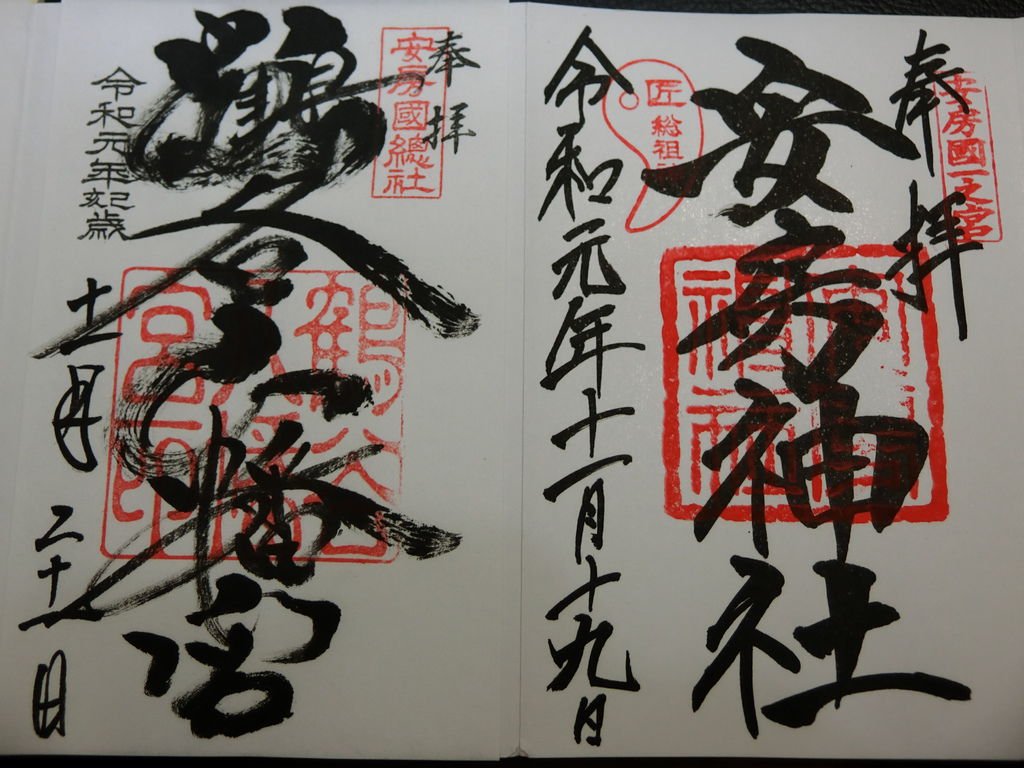 奉拝
安房國一之宮
安房神社
匠総祖
令和元年十一月十九日
奉拝
安房國總社
鶴谷八幡宮
令和元年
歳
十一月
二十一日